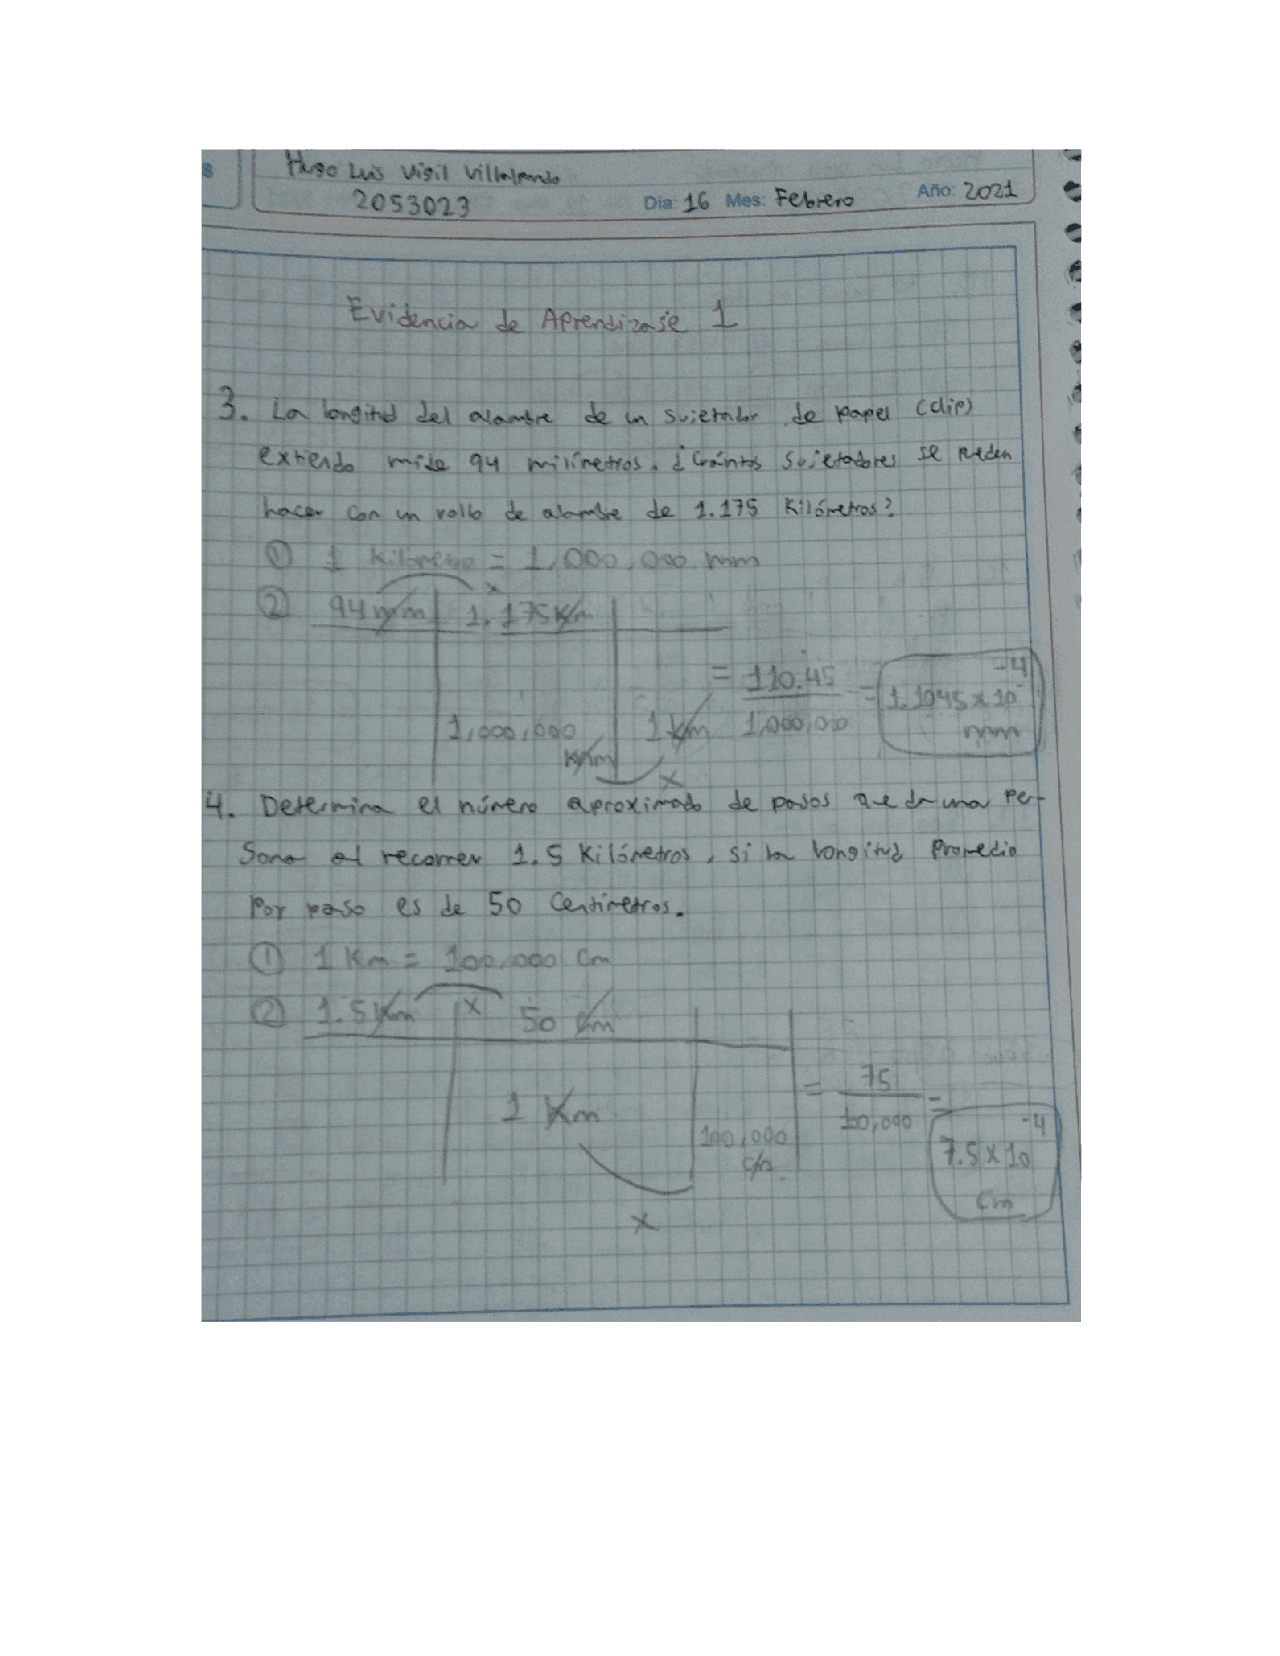 s
Hugo Luis Vigil Villalpando
2053023
Día 16 Mes: Febrero Año: 2021
Evidencia de Aprendizaje 1
3. La longitud del alambre de un sujetador de papel (clip)
extiendo mide 94 milímetros. ¿Cuántos sujetadores se pueden
hacer con un rollo de alambre de 1.175 Kilómetros?
① 1 Kilometro = 1,000,000 mm
x
② 94 mm 1.175 Km
= 110.45 = 1.1045 x 10 -4
1,000,000 1 km 1,000,000 mm
Km
x
4. Determina el número aproximado de pasos que da una per-
sona al recorrer 1.5 Kilómetros, si la longitud Promedio
Por paso es de 50 Centímetros.
① 1 Km = 100,000 Cm
② 1.5 Km x 50 cm
= 75 =
1 Km 100,000 100,000 7.5 x 10 -4
cm
Cm
x